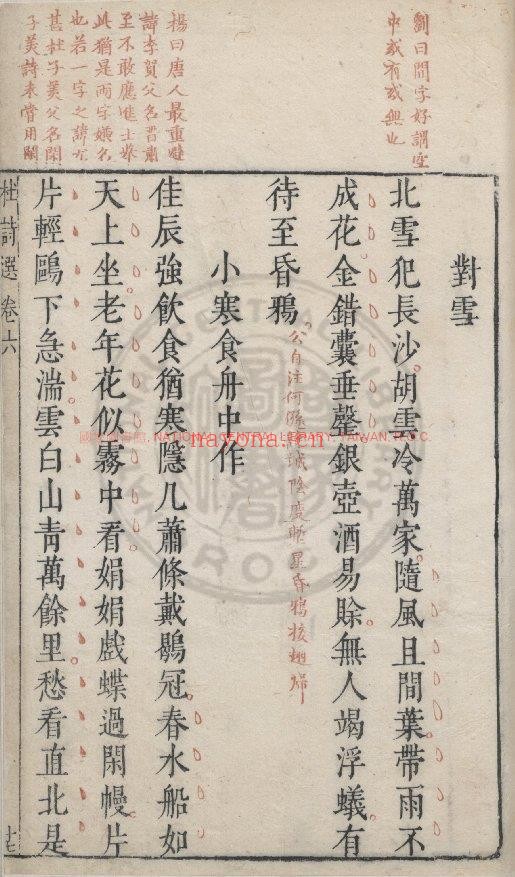 劉曰間字好謂空
中或有或無也
楊曰唐人最重避
諱李賀父名晉肅
至不敢應進士舉
此猶是兩字嫌名
也若一字之諱尤
甚杜子美父名閑
子美詩未嘗用閑
對雪
北雪犯長沙胡雲冷萬家隨風且間葉帶雨不
成花金錯囊垂罄銀壺酒易賒無人竭浮蟻有
待至昏鴉
公自注何遜詩城陰度塹黑昏鴉接翅歸
小寒食舟中作
佳辰強飲食猶寒隱几蕭條戴鶡冠春水船如
天上坐老年花似霧中看娟娟戲蝶過閑幔片
片輕鷗下急湍雲白山青萬餘里愁看直北是
杜詩選卷六
NATIONAL CENTRAL LIBRARY, TAIWAN, R.O.C.
nayona.cn